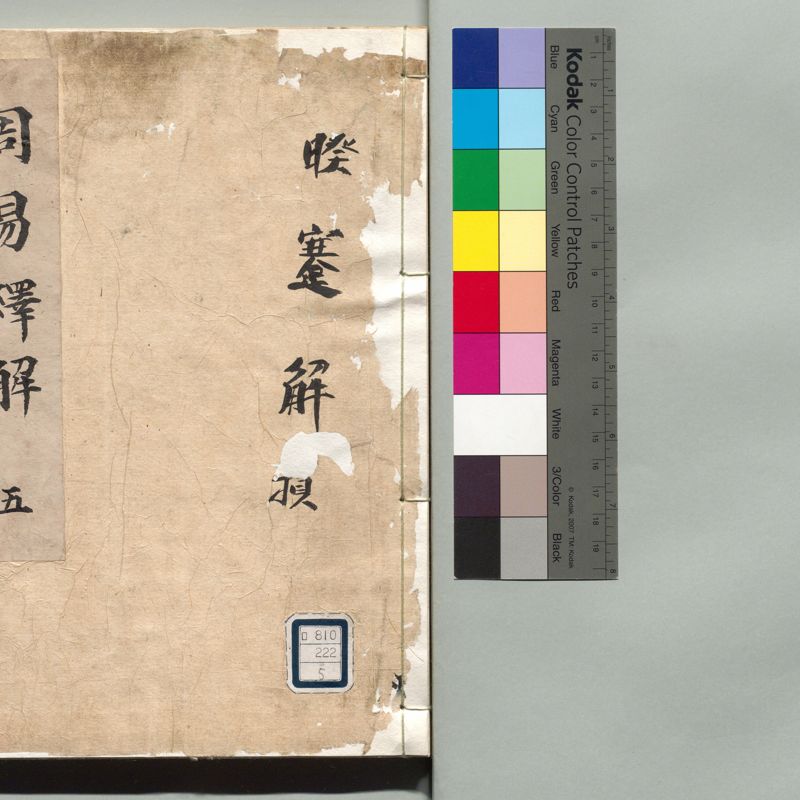 睽 蹇 解 損
周易繹解 五
ロ 810
222
5
Kodak Color Control Patches
Blue
Cyan
Green
Yellow
Red
Magenta
White
3/Color
Black
© Kodak, 2007 TM: Kodak
cm 1 2 3 4 5 6 7 8 9 10 11 12 13 14 15 16 17 18 19
inches 1 2 3 4 5 6 7 8